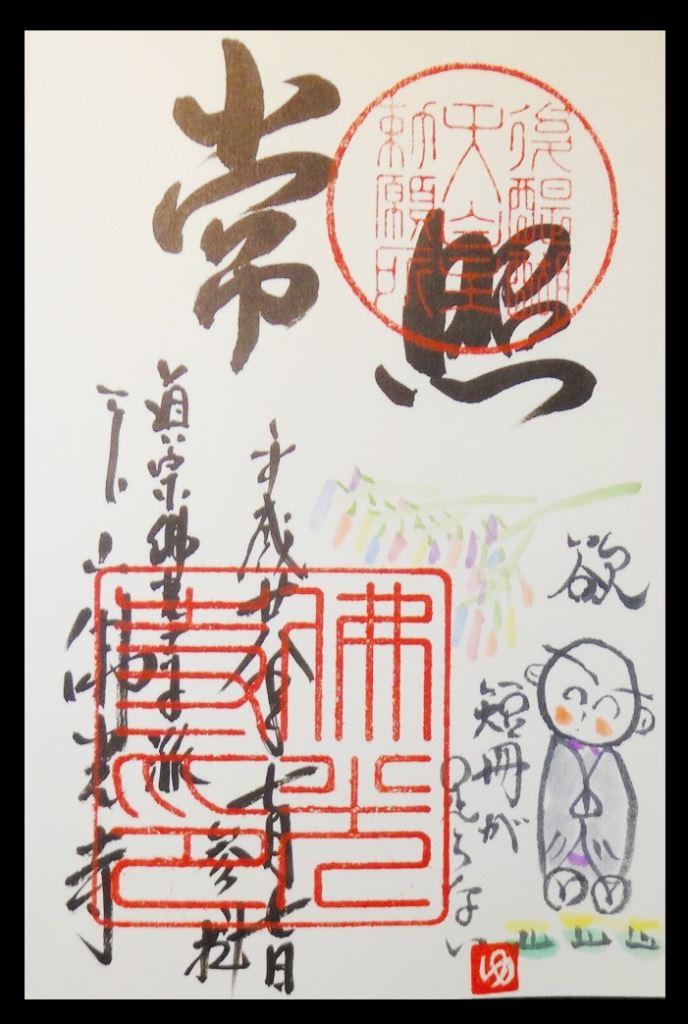 常照
後醍醐
天皇
勅願所
欲
短冊が
足らない
平成廿八年七月七日
参拝
真宗佛光寺派
本山佛光寺
佛光
ゆ